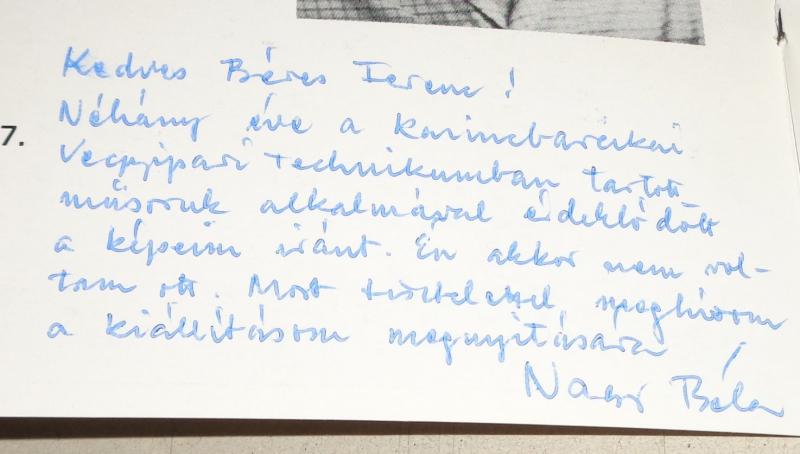 Kedves Béres Ferenc!
7.
Néhány éve a Kazincbarcikai
Vegyipari Technikumban tartott
műsoruk alkalmával érdeklődött
a képeim iránt. Én akkor nem vol-
tam ott. Most tisztelettel meghívom
a kiállításom megnyitására!
Nagy Béla